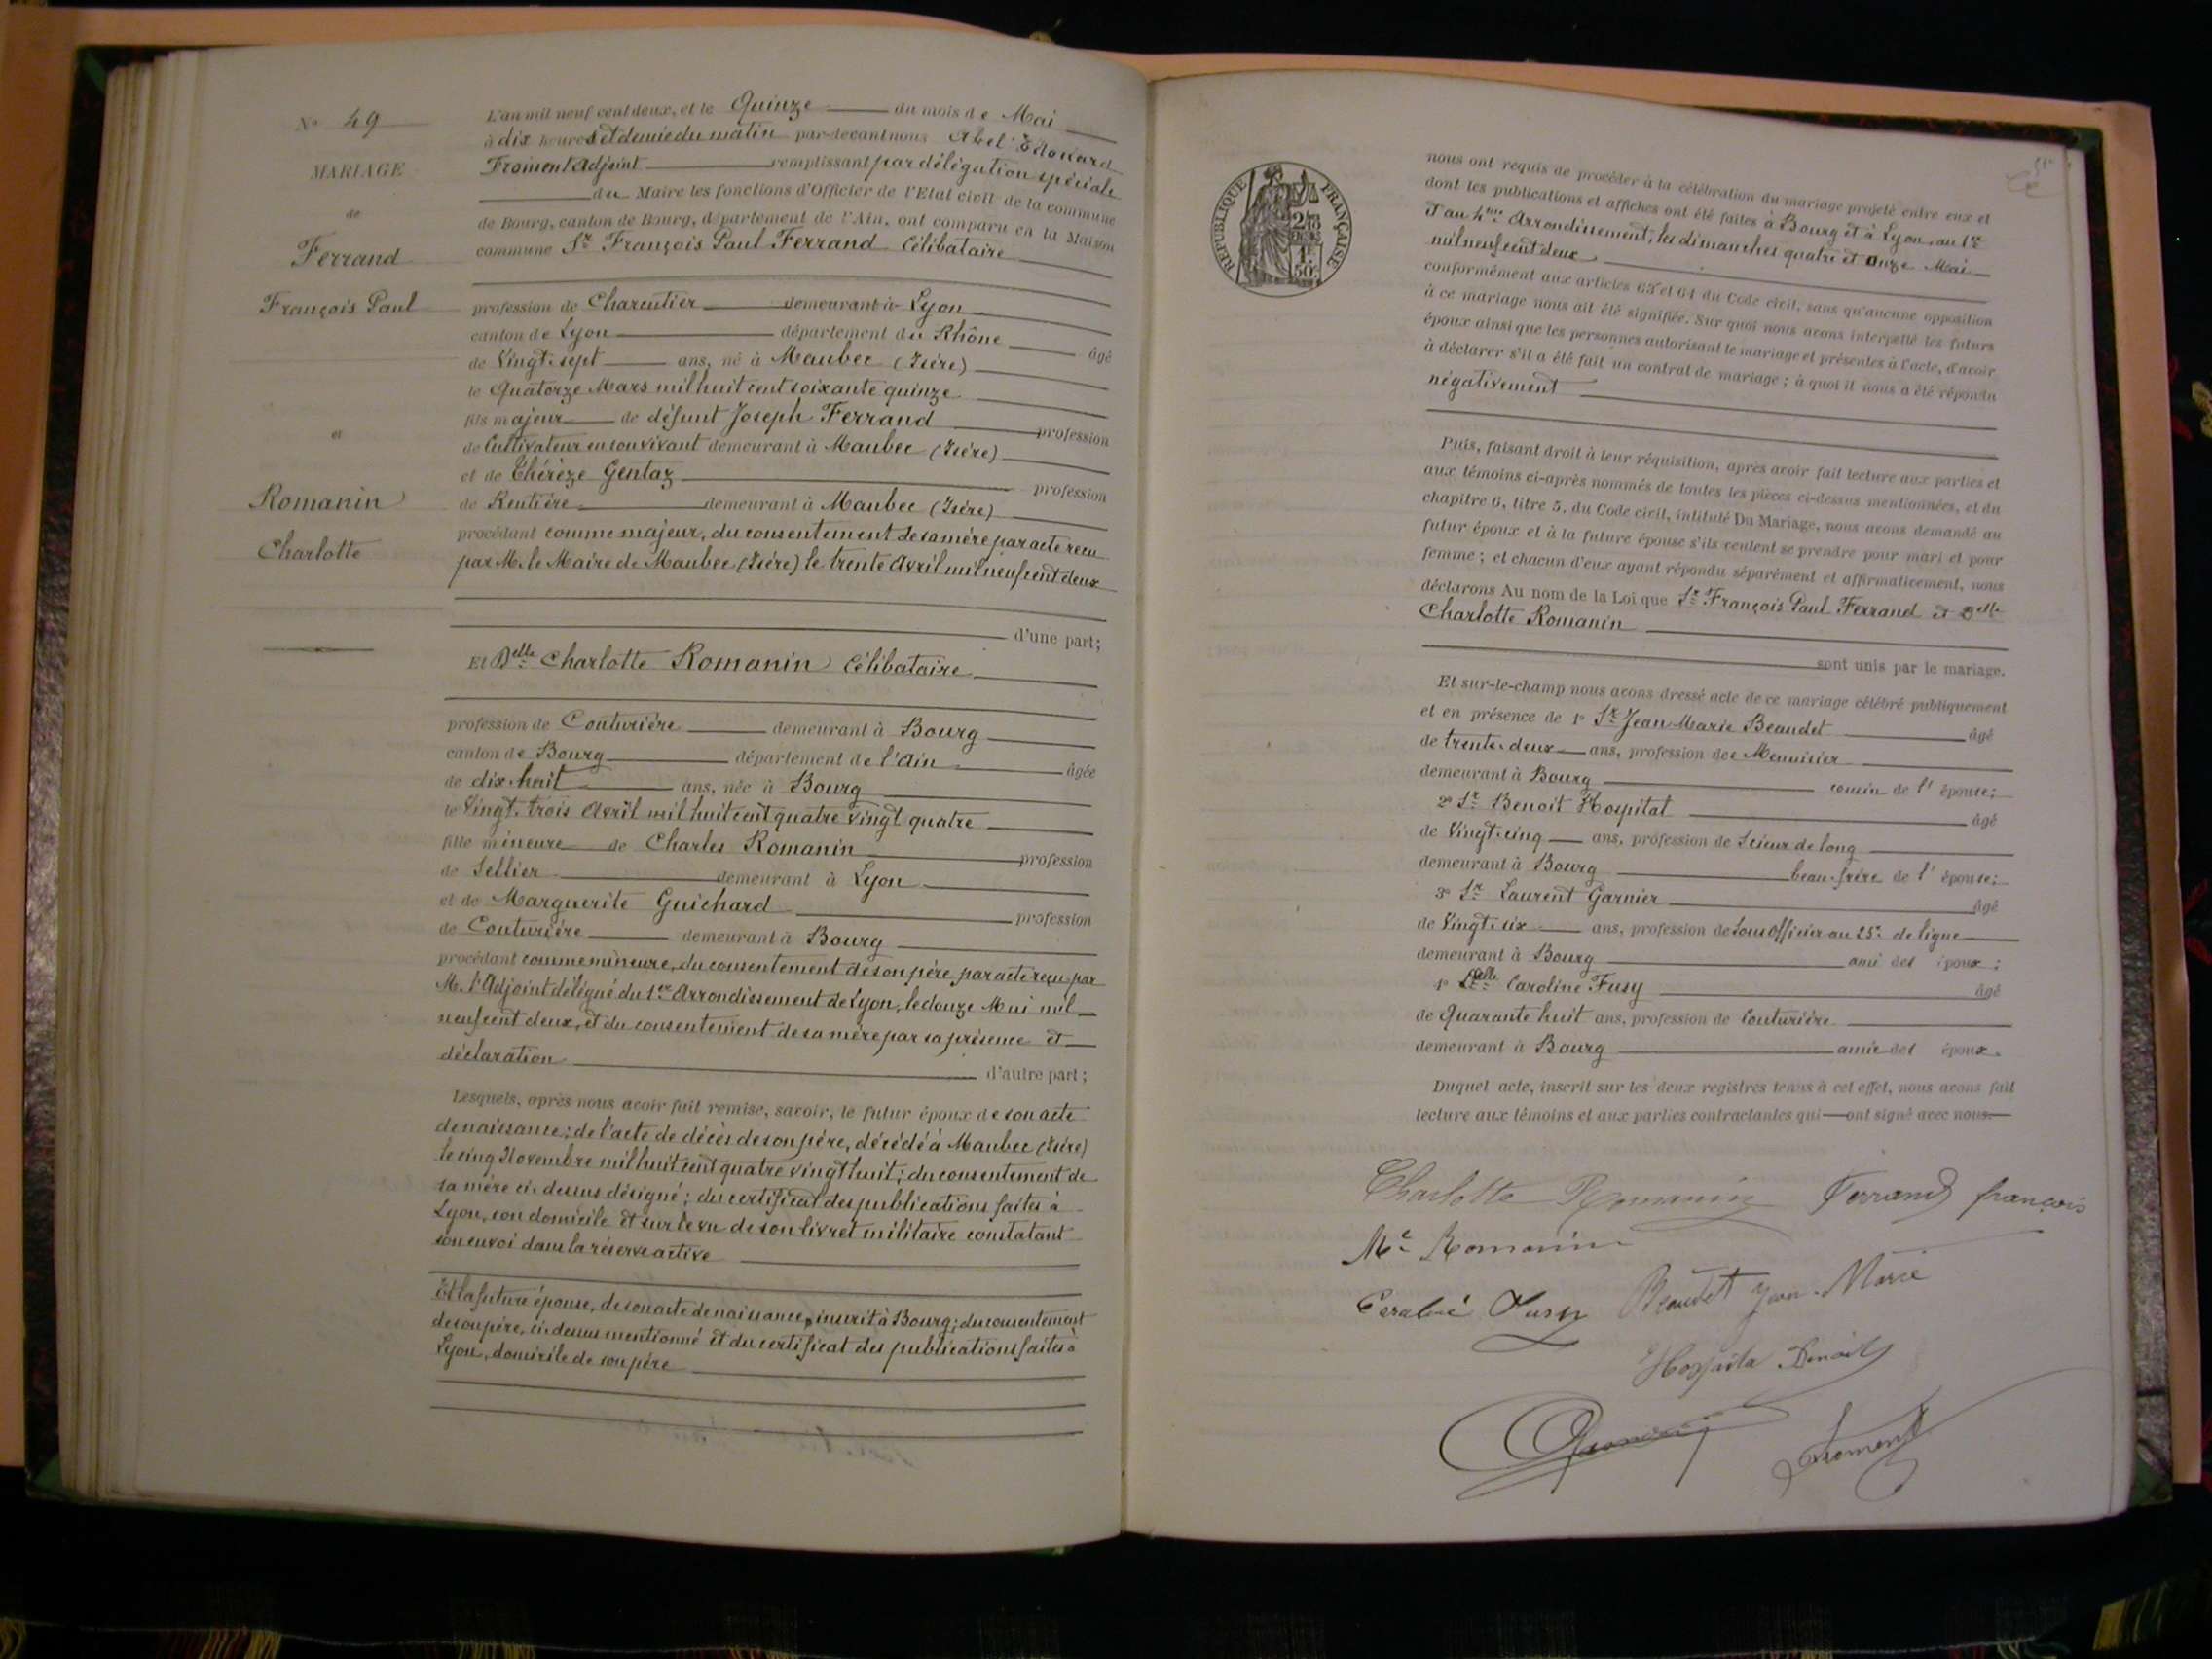 N° 49
MARIAGE
de
Ferrand
François Paul
et
Romanin
Charlotte
L'an mil neuf cent deux, et le Quinze du mois de Mai
à dix heures et demie du matin par-devant nous Abel Edouard
Froment Adjoint remplissant par délégation spéciale
du Maire les fonctions d'Officier de l'Etat civil de la commune
de Bourg, canton de Bourg, département de l'Ain, ont comparu en la Maison
commune Sr François Paul Ferrand Célibataire
profession de Charcutier demeurant à Lyon
canton de Lyon département du Rhône âgé
de Vingt-sept ans, né à Maubec (Isère)
le Quatorze Mars mil huit cent soixante quinze
fils majeur de défunt Joseph Ferrand profession
de Cultivateur en son vivant demeurant à Maubec (Isère)
et de Thérèze Gentaz profession
de Rentière demeurant à Maubec (Isère)
procédant comme majeur, du consentement de sa mère par acte reçu
par M. le Maire de Maubec (Isère) le trente Avril mil neuf cent deux
d'une part;
Et Delle Charlotte Romanin Célibataire
profession de Couturière demeurant à Bourg
canton de Bourg département de l'Ain âgée
de dix-huit ans, née à Bourg
le Vingt-trois Avril mil huit cent quatre vingt quatre
fille mineure de Charles Romanin profession
de Sellier demeurant à Lyon
et de Marguerite Guichard profession
de Couturière demeurant à Bourg
procédant comme mineure, du consentement de son père, par acte reçu par
M. l'Adjoint délégué du 1er Arrondissement de Lyon, le douze Mai mil
neuf cent deux, et du consentement de sa mère par sa présence et
déclaration d'autre part;
Lesquels, après nous avoir fait remise, savoir, le futur époux de son acte
de naissance; de l'acte de décès de son père, décédé à Maubec (Isère)
le cinq Novembre mil huit cent quatre vingt huit; du consentement de
sa mère ci-dessus désigné; du certificat des publications faites à
Lyon, son domicile et sur le vu de son livret militaire constatant
son envoi dans la réserve active
Et la future épouse, de son acte de naissance, inscrit à Bourg; du consentement
de son père, ci-dessus mentionné et du certificat des publications faites à
Lyon, domicile de son père
REPUBLIQUE FRANÇAISE
nous ont requis de procéder à la célébration du mariage projeté entre eux et
dont les publications et affiches ont été faites à Bourg et à Lyon, au 1er
et au 4me Arrondissement, les dimanches quatre et onze Mai
mil neuf cent deux
conformément aux articles 63 et 64 du Code civil, sans qu'aucune opposition
à ce mariage nous ait été signifiée. Sur quoi nous avons interpellé les futurs
époux ainsi que les personnes autorisant le mariage et présentes à l'acte, d'avoir
à déclarer s'il a été fait un contrat de mariage; à quoi il nous a été répondu
négativement
Puis, faisant droit à leur réquisition, après avoir fait lecture aux parties et
aux témoins ci-après nommés de toutes les pièces ci-dessus mentionnées, et du
chapitre 6, titre 5, du Code civil, intitulé Du Mariage, nous avons demandé au
futur époux et à la future épouse s'ils veulent se prendre pour mari et pour
femme; et chacun d'eux ayant répondu séparément et affirmativement, nous
déclarons Au nom de la Loi que Sr François Paul Ferrand et Delle
Charlotte Romanin
sont unis par le mariage.
Et sur-le-champ nous avons dressé acte de ce mariage célébré publiquement
et en présence de 1° Sr Jean Marie Beaudet âgé
de trente-deux ans, profession de Menuisier
demeurant à Bourg cousin de l'épouse;
2° Sr Benoit Hospital âgé
de Vingt-cinq ans, profession de Scieur de long
demeurant à Bourg beau-frère de l'épouse;
3° Sr Laurent Garnier âgé
de Vingt-six ans, profession de Sous Officier au 23e de ligne
demeurant à Bourg ami des époux;
4° Delle Caroline Fusy âgé
de Quarante huit ans, profession de Couturière
demeurant à Bourg amie des époux.
Duquel acte, inscrit sur les deux registres tenus à cet effet, nous avons fait
lecture aux témoins et aux parties contractantes qui ont signé avec nous.
Charlotte Romanin Ferrand françois
Me Romanin
Fusy Beaudet Jean-Marie
Hospital Benoit
Froment